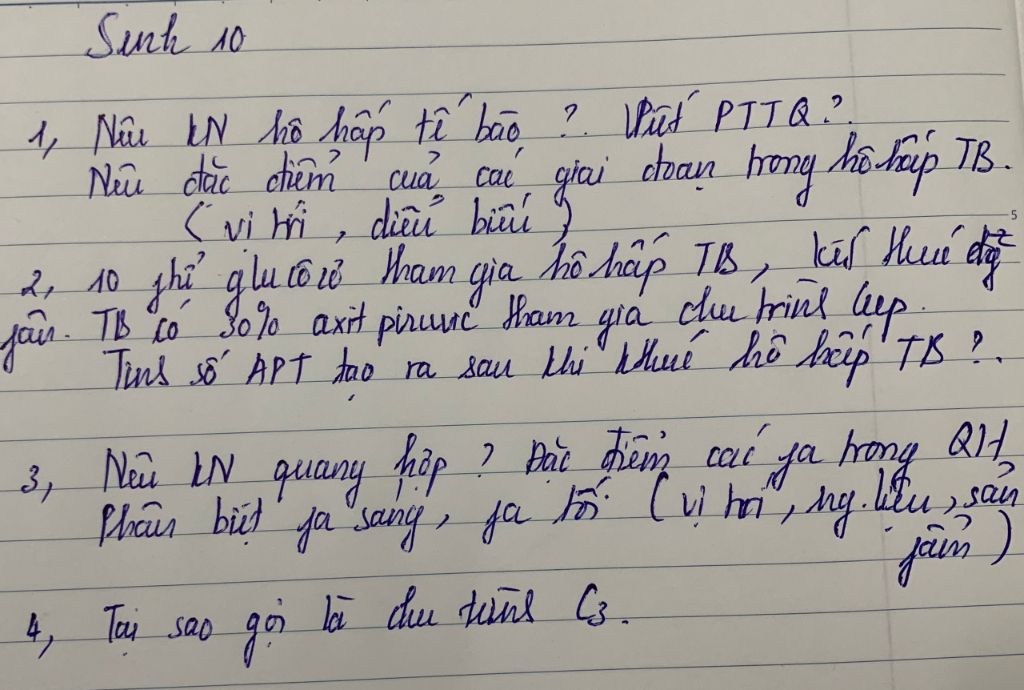 Sinh 10
1, Nêu KN hô hấp tế bào ? Viết PTTQ ?
Nêu đặc điểm của các giai đoạn trong hô hấp TB.
( vị trí , diễn biến )
2, 10 ptử glucôzơ tham gia hô hấp TB, kết thúc đg
phân. TB có 30% axit piruvic tham gia chu trình Crep.
Tính số APT tạo ra sau khi kthúc hô hấp TB ?.
3, Nêu KN quang hợp ? Đặc điểm các pa trong QH
Phân biệt pa sáng, pa tối ( vị trí , ng.liệu , sản
phẩm )
4, Tại sao gọi là chu trình C3.
5